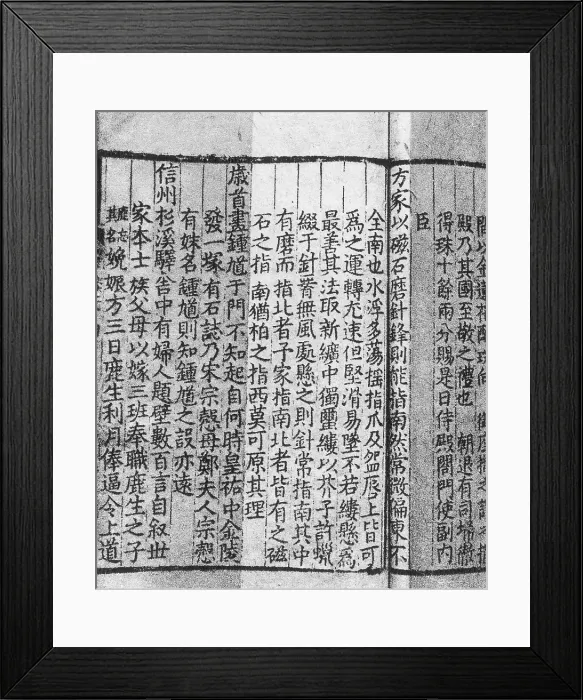 以金蓮花酌珠向 御座撒之謂之撒
殿乃其國至敬之禮也 朝退有司掃徹
得珠十餘兩分賜是日侍殿閤門使副內
臣
方家以磁石磨針鋒則能指南然常微偏東不
全南也水浮多蕩搖指爪及盌唇上皆可
爲之運轉尤速但堅滑易墜不若縷懸爲
最善其法取新纊中獨蠒縷以芥子許蠟
綴于針腰無風處懸之則針常指南其中
有磨而指北者予家指南北者皆有之磁
石之指南猶柏之指西莫可原其理
歳首畫鍾馗于門不知起自何時皇祐中金陵
發一塚有石誌乃宋宗愨母鄭夫人宗愨
有妹名鍾馗則知鍾馗之設亦遠
信州杉溪驛舍中有婦人題壁數百言自叙世
家本士族父母以嫁三班奉職鹿生之子
鹿忘其名娩娠方三日鹿生利月俸逼令上道